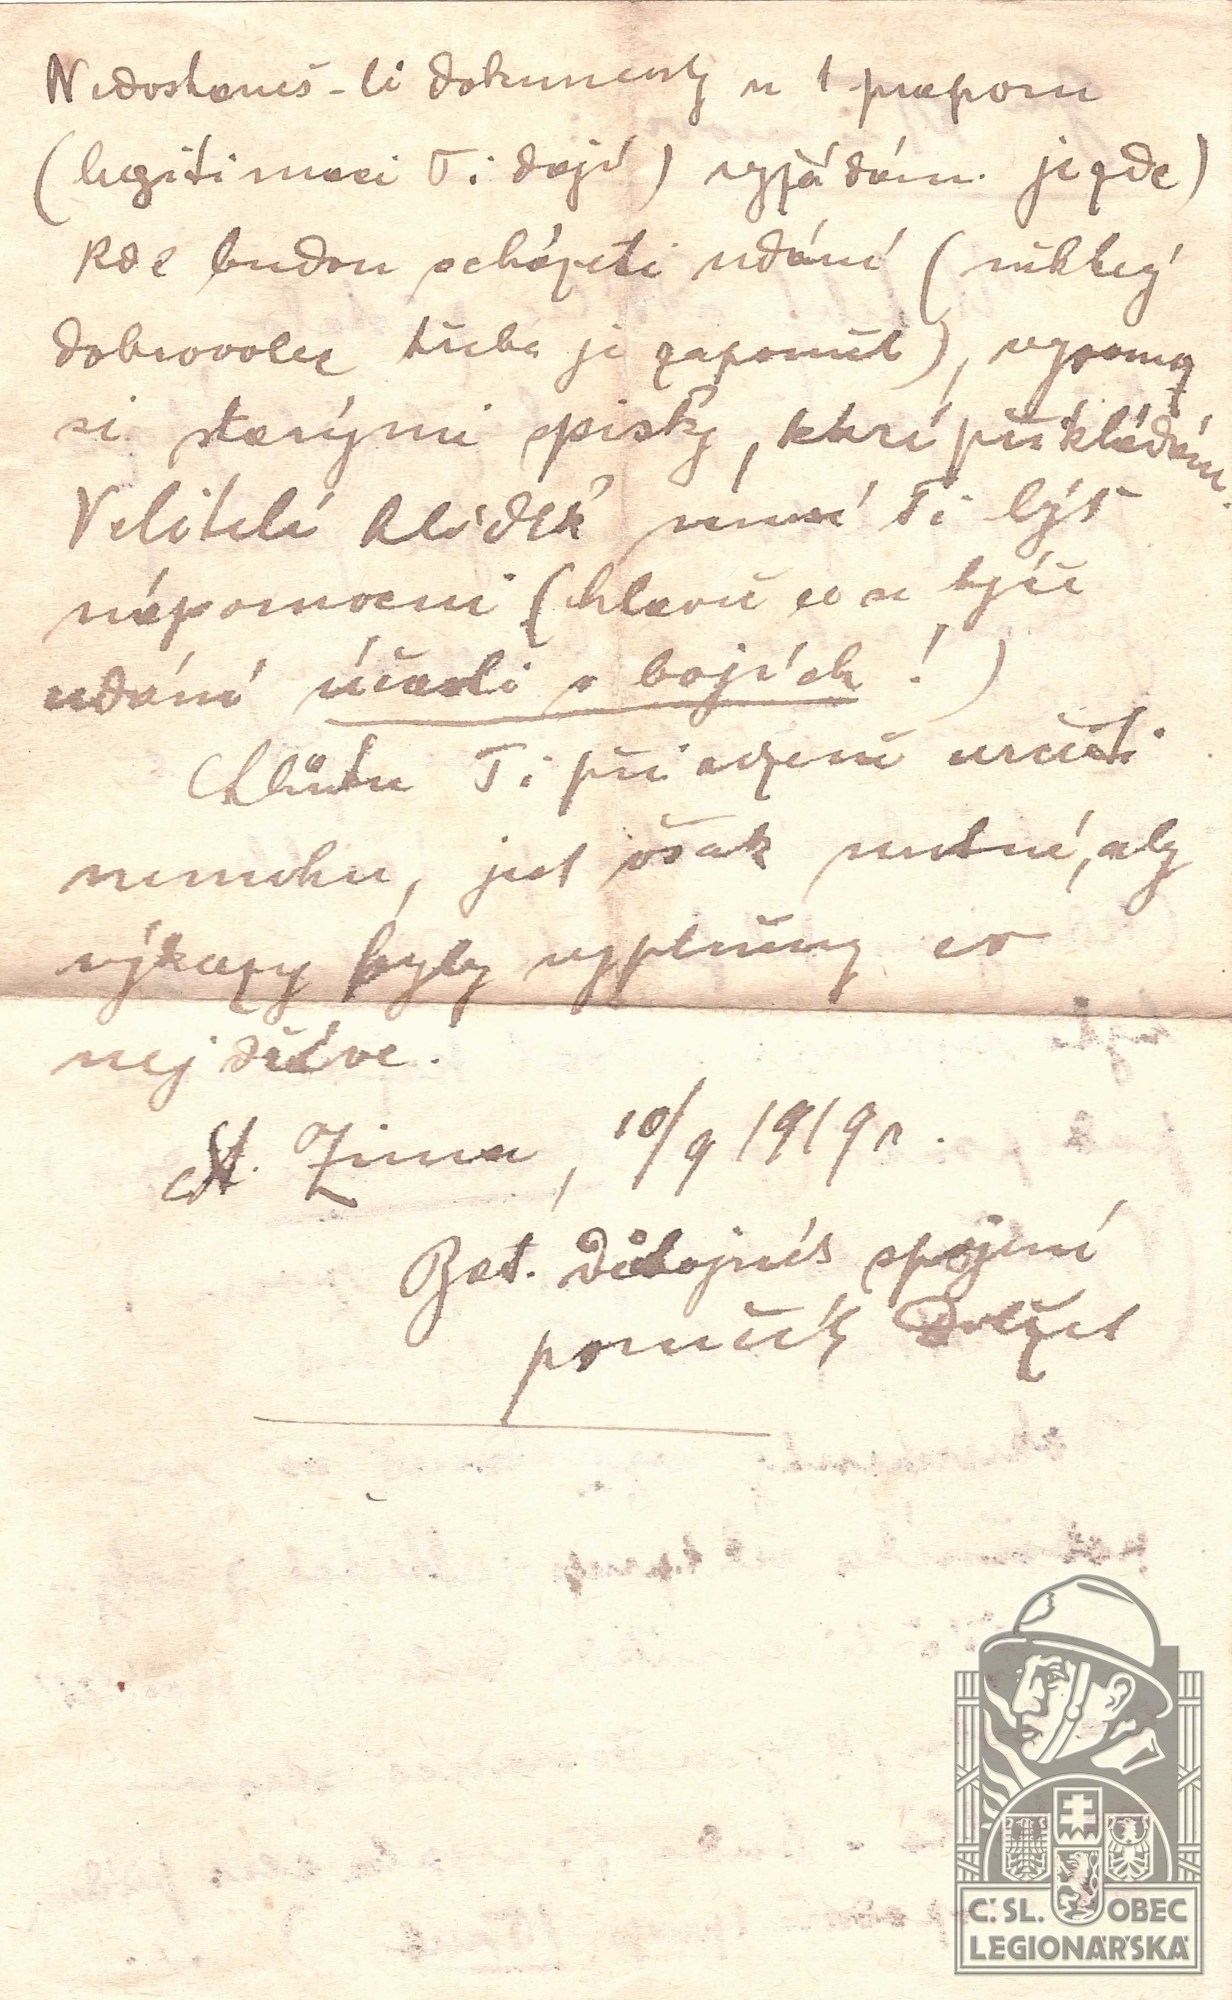 Nedostaneš-li dokumenty u 1 praporu
(legitimaci Ti dají) vyžádám je zde)
Kde budou scházeti udání (někteý
dobrovolec třeba je zapoměl), vypomoz
si starými spisky, které přikládám.
Velitelé hlídek musí Ti být
nápomocni (hlavně co se týče
udání účasti v bojích!)
Lhůtu Ti přirozeně určiti
nemohu, jest však nutné, aby
výkazy byly vyplněny co
nejdříve.
St. Zima, 10/9 1919 r.
Bat. důstojník spojení
poručík
Č.SL. OBEC
LEGIONÁŘSKÁ